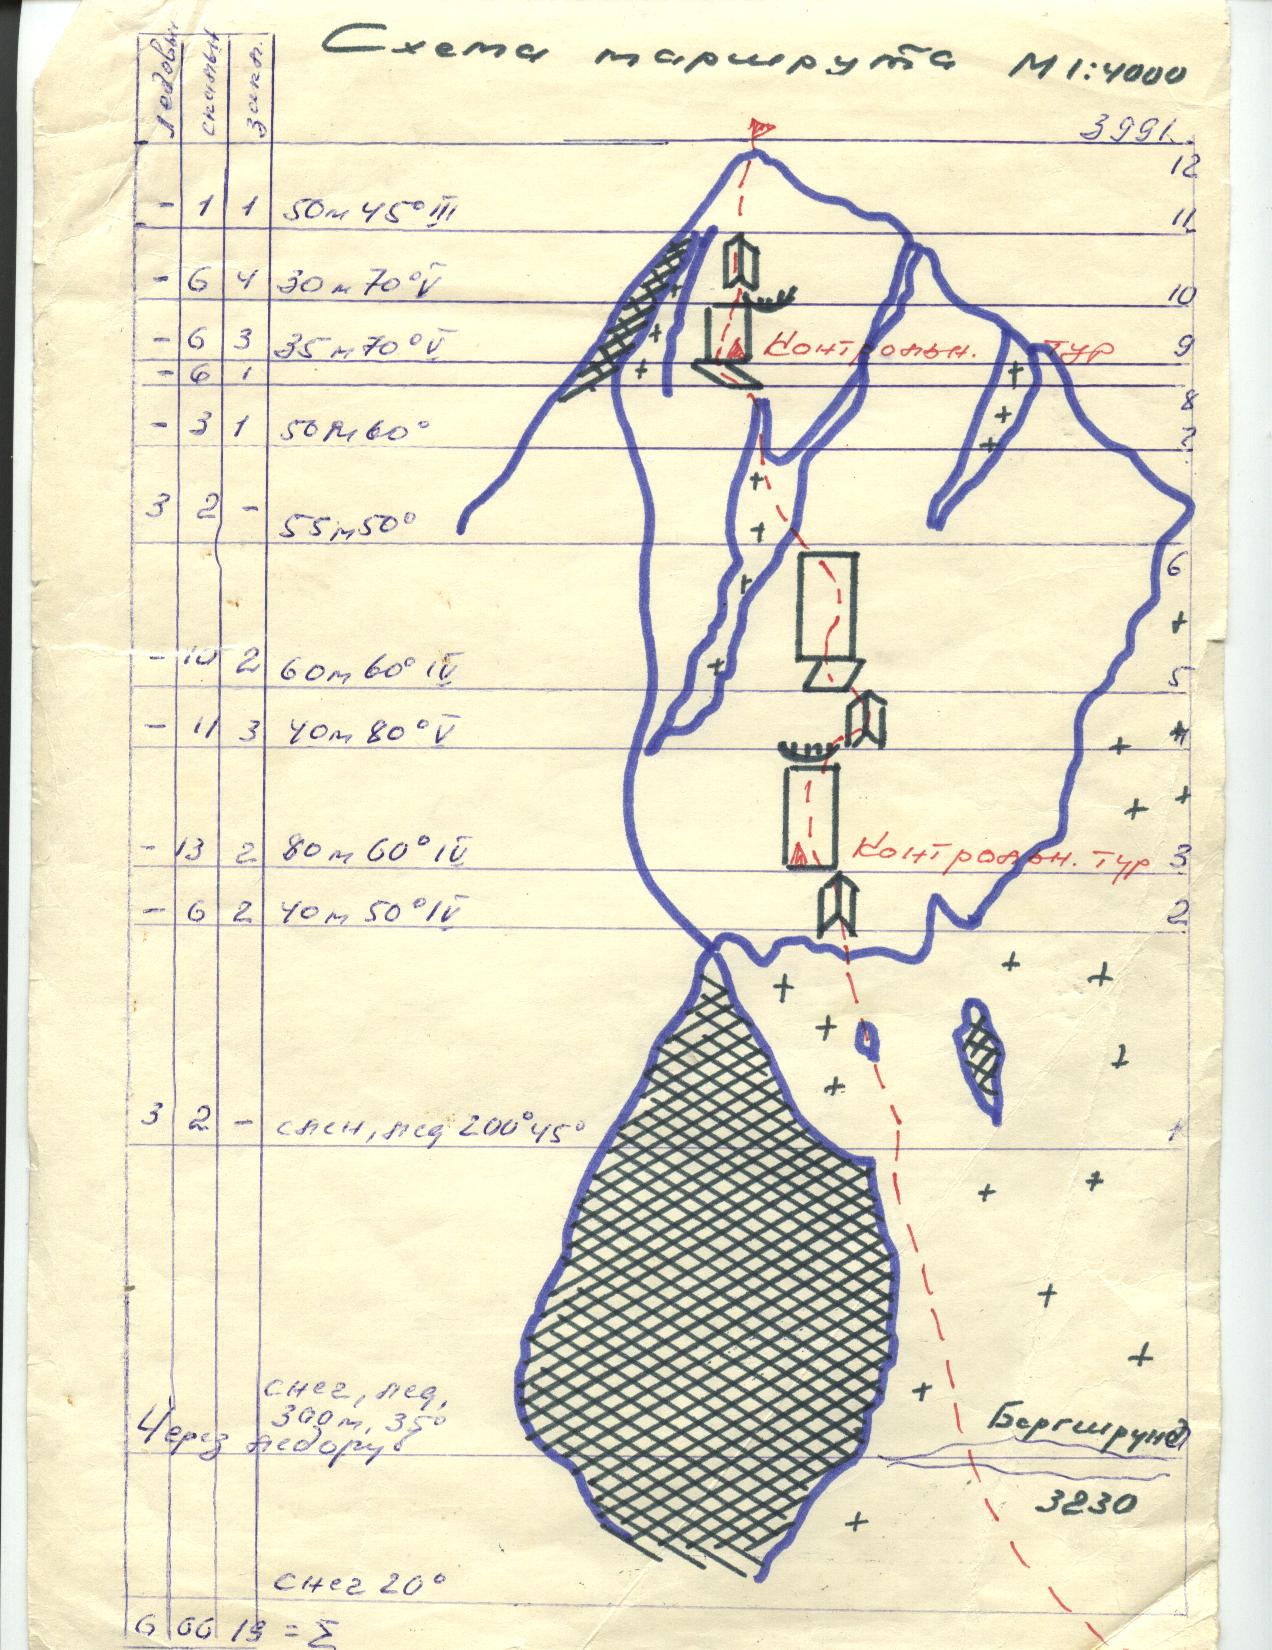 Схема маршрута М 1:4000
Ледовые скальн закл.
3991
12
- 1 1 50м 45° III 11
- 6 4 30м 70° V 10
- 6 3 35м 70° V Контрольн. ТУР 9
- 6 1 8
- 3 1 50м 60° 7
3 2 - 55м 50°
6
- 10 2 60м 60° IV 5
- 11 3 40м 80° V 4
- 13 2 80м 60° IV Контрольн. ТУР 3
- 6 2 40м 50° IV 2
3 2 - снег, лед 200° 45° 1
снег, лед,
300м, 35°
Через ледоруб
Бергшрунд
3230
снег 20°
6 66 19 = Σ